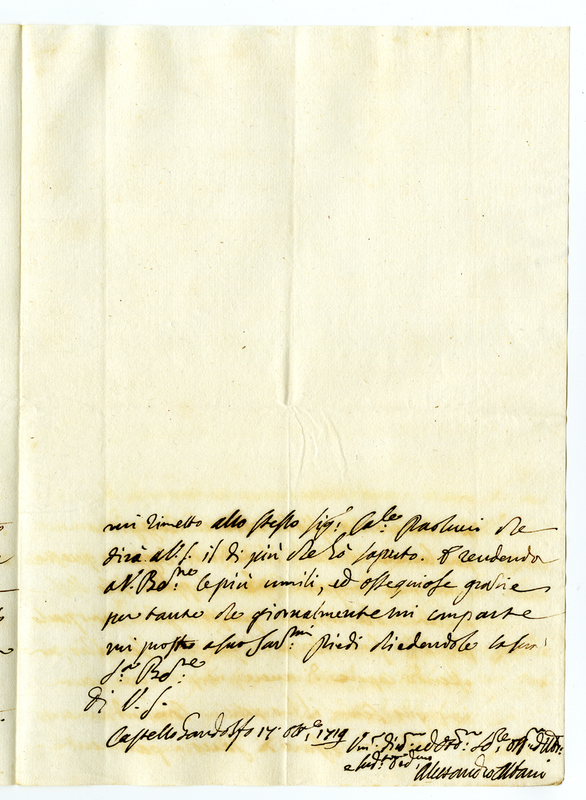 mi rimetto allo stesso Sig.r Ca.le Paolucci che
dirà a V. S. il di più che hò saputo. E rendendo
a V. Be.ne le più umili, ed ossequiose grazie
per tante che giornalmente mi comparte
mi prostro a suoi San.mi Piedi chiedendole la sua
S.ta Be.ne
di V. S.
Castel Gandolfo 17 Ott.e 1719
Um.o
Alessandro Albani